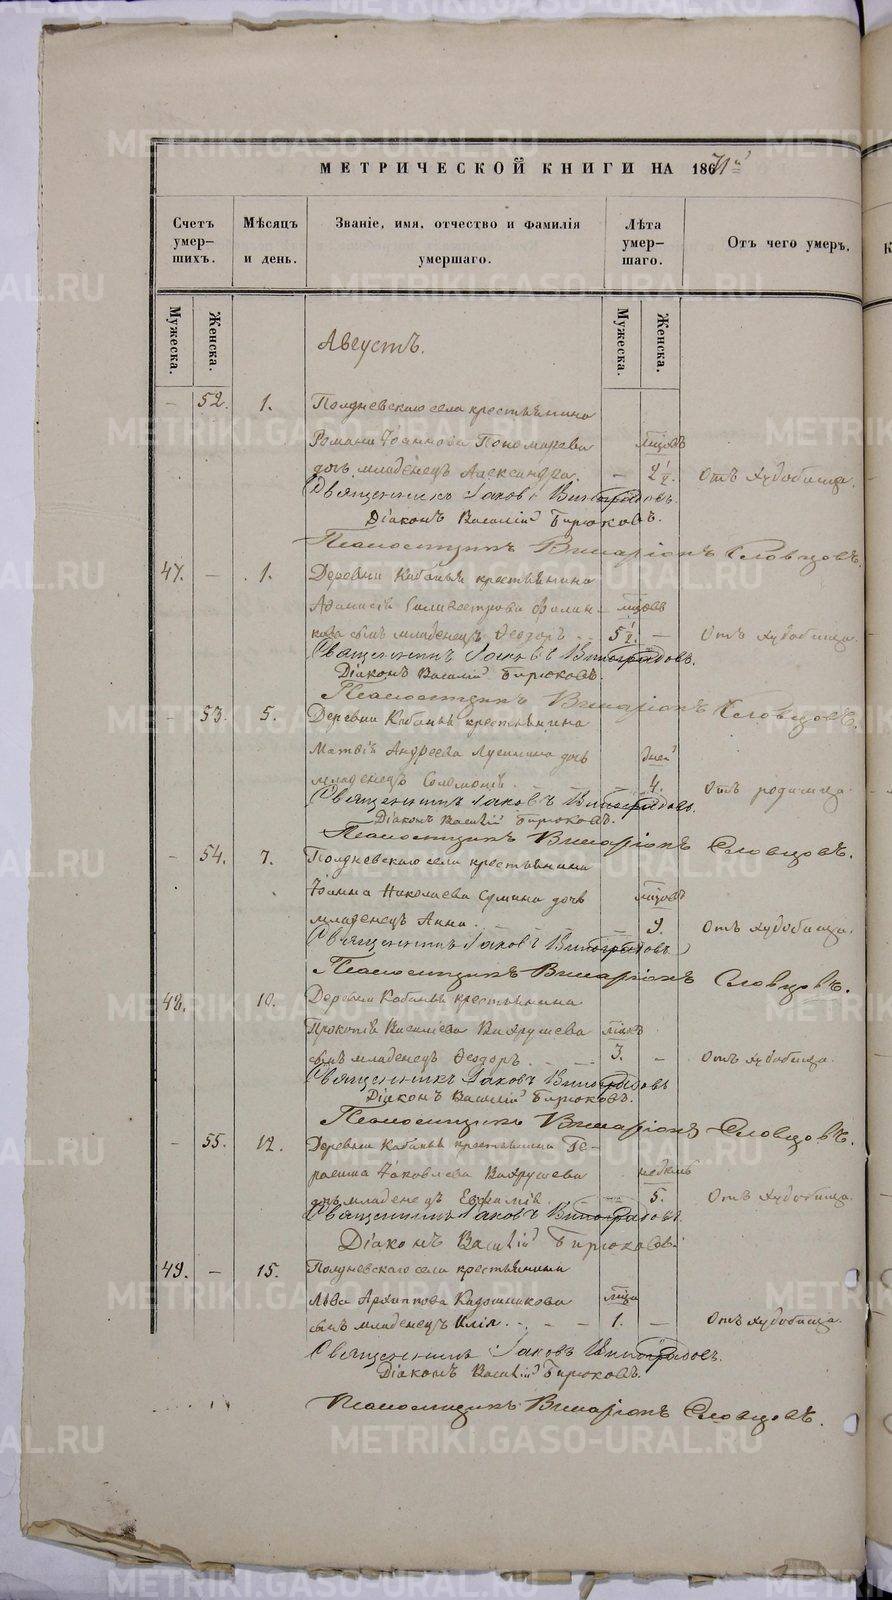 МЕТРИЧЕСКОЙ КНИГИ НА 1871й
Счетъ умер-шихъ.
Мѣсяцъ и день.
Званіе, имя, отчество и фамилія умершаго.
Лѣта умер-шаго.
Отъ чего умеръ.
Мужеска.
Женска.
Мужеска.
Женска.
Августъ.
– 52. 1. Полдневскаго села крестьянина
Романа Іоаннова Пономарева мѣсяцовъ
дочь младенецъ Александра. – 2½. Отъ худобища.
Священникъ Іаковъ Виноградовъ.
Діаконъ Василій Бирюковъ.
Псаломщикъ Виссаріонъ Словцовъ.
47. – 1. Деревни Кабаньи крестьянина
Афанасія Силивестрова мѣсяцовъ
сынъ младенецъ Ѳеодоръ. 5½. – Отъ худобища.
Священникъ Іаковъ Виноградовъ.
Діаконъ Василій Бирюковъ.
Псаломщикъ Виссаріонъ Словцовъ.
– 53. 5. Деревни Кабаньи крестьянина
Матвія Андреева дочь дней
младенецъ Соломонія. – 4. Отъ родимца.
Священникъ Іаковъ Виноградовъ.
Діаконъ Василій Бирюковъ.
Псаломщикъ Виссаріонъ Словцовъ.
– 54. 7. Полдневскаго села крестьянина
Іоанна Николаева дочь мѣсяцовъ
младенецъ Анна. – 9. Отъ худобища.
Священникъ Іаковъ Виноградовъ
Псаломщикъ Виссаріонъ Словцовъ.
48. – 10. Деревни Кабаньи крестьянина
Прокопія Василіева Вахрушева
сынъ младенецъ Ѳеодоръ. – Отъ худобища.
Священникъ Іаковъ Виноградовъ
Діаконъ Василій Бирюковъ.
Псаломщикъ Виссаріонъ Словцовъ.
– 55. 12. Деревни Кабаньи крестьянина Ге-
расима Іаковлева Вахрушева недель
дочь младенецъ Евфимія. – 5. Отъ худобища.
Священникъ Іаковъ Виноградовъ.
Діаконъ Василій Бирюковъ.
49. – 15. Полдневскаго села крестьянина
Льва Архиппова Кадошникова мѣсяца
сынъ младенецъ Илія. 1. – Отъ худобища.
Священникъ Іаковъ Виноградовъ.
Діаконъ Василій Бирюковъ.
Псаломщикъ Виссаріонъ Словцовъ.
METRIKI.GASO-URAL.RU